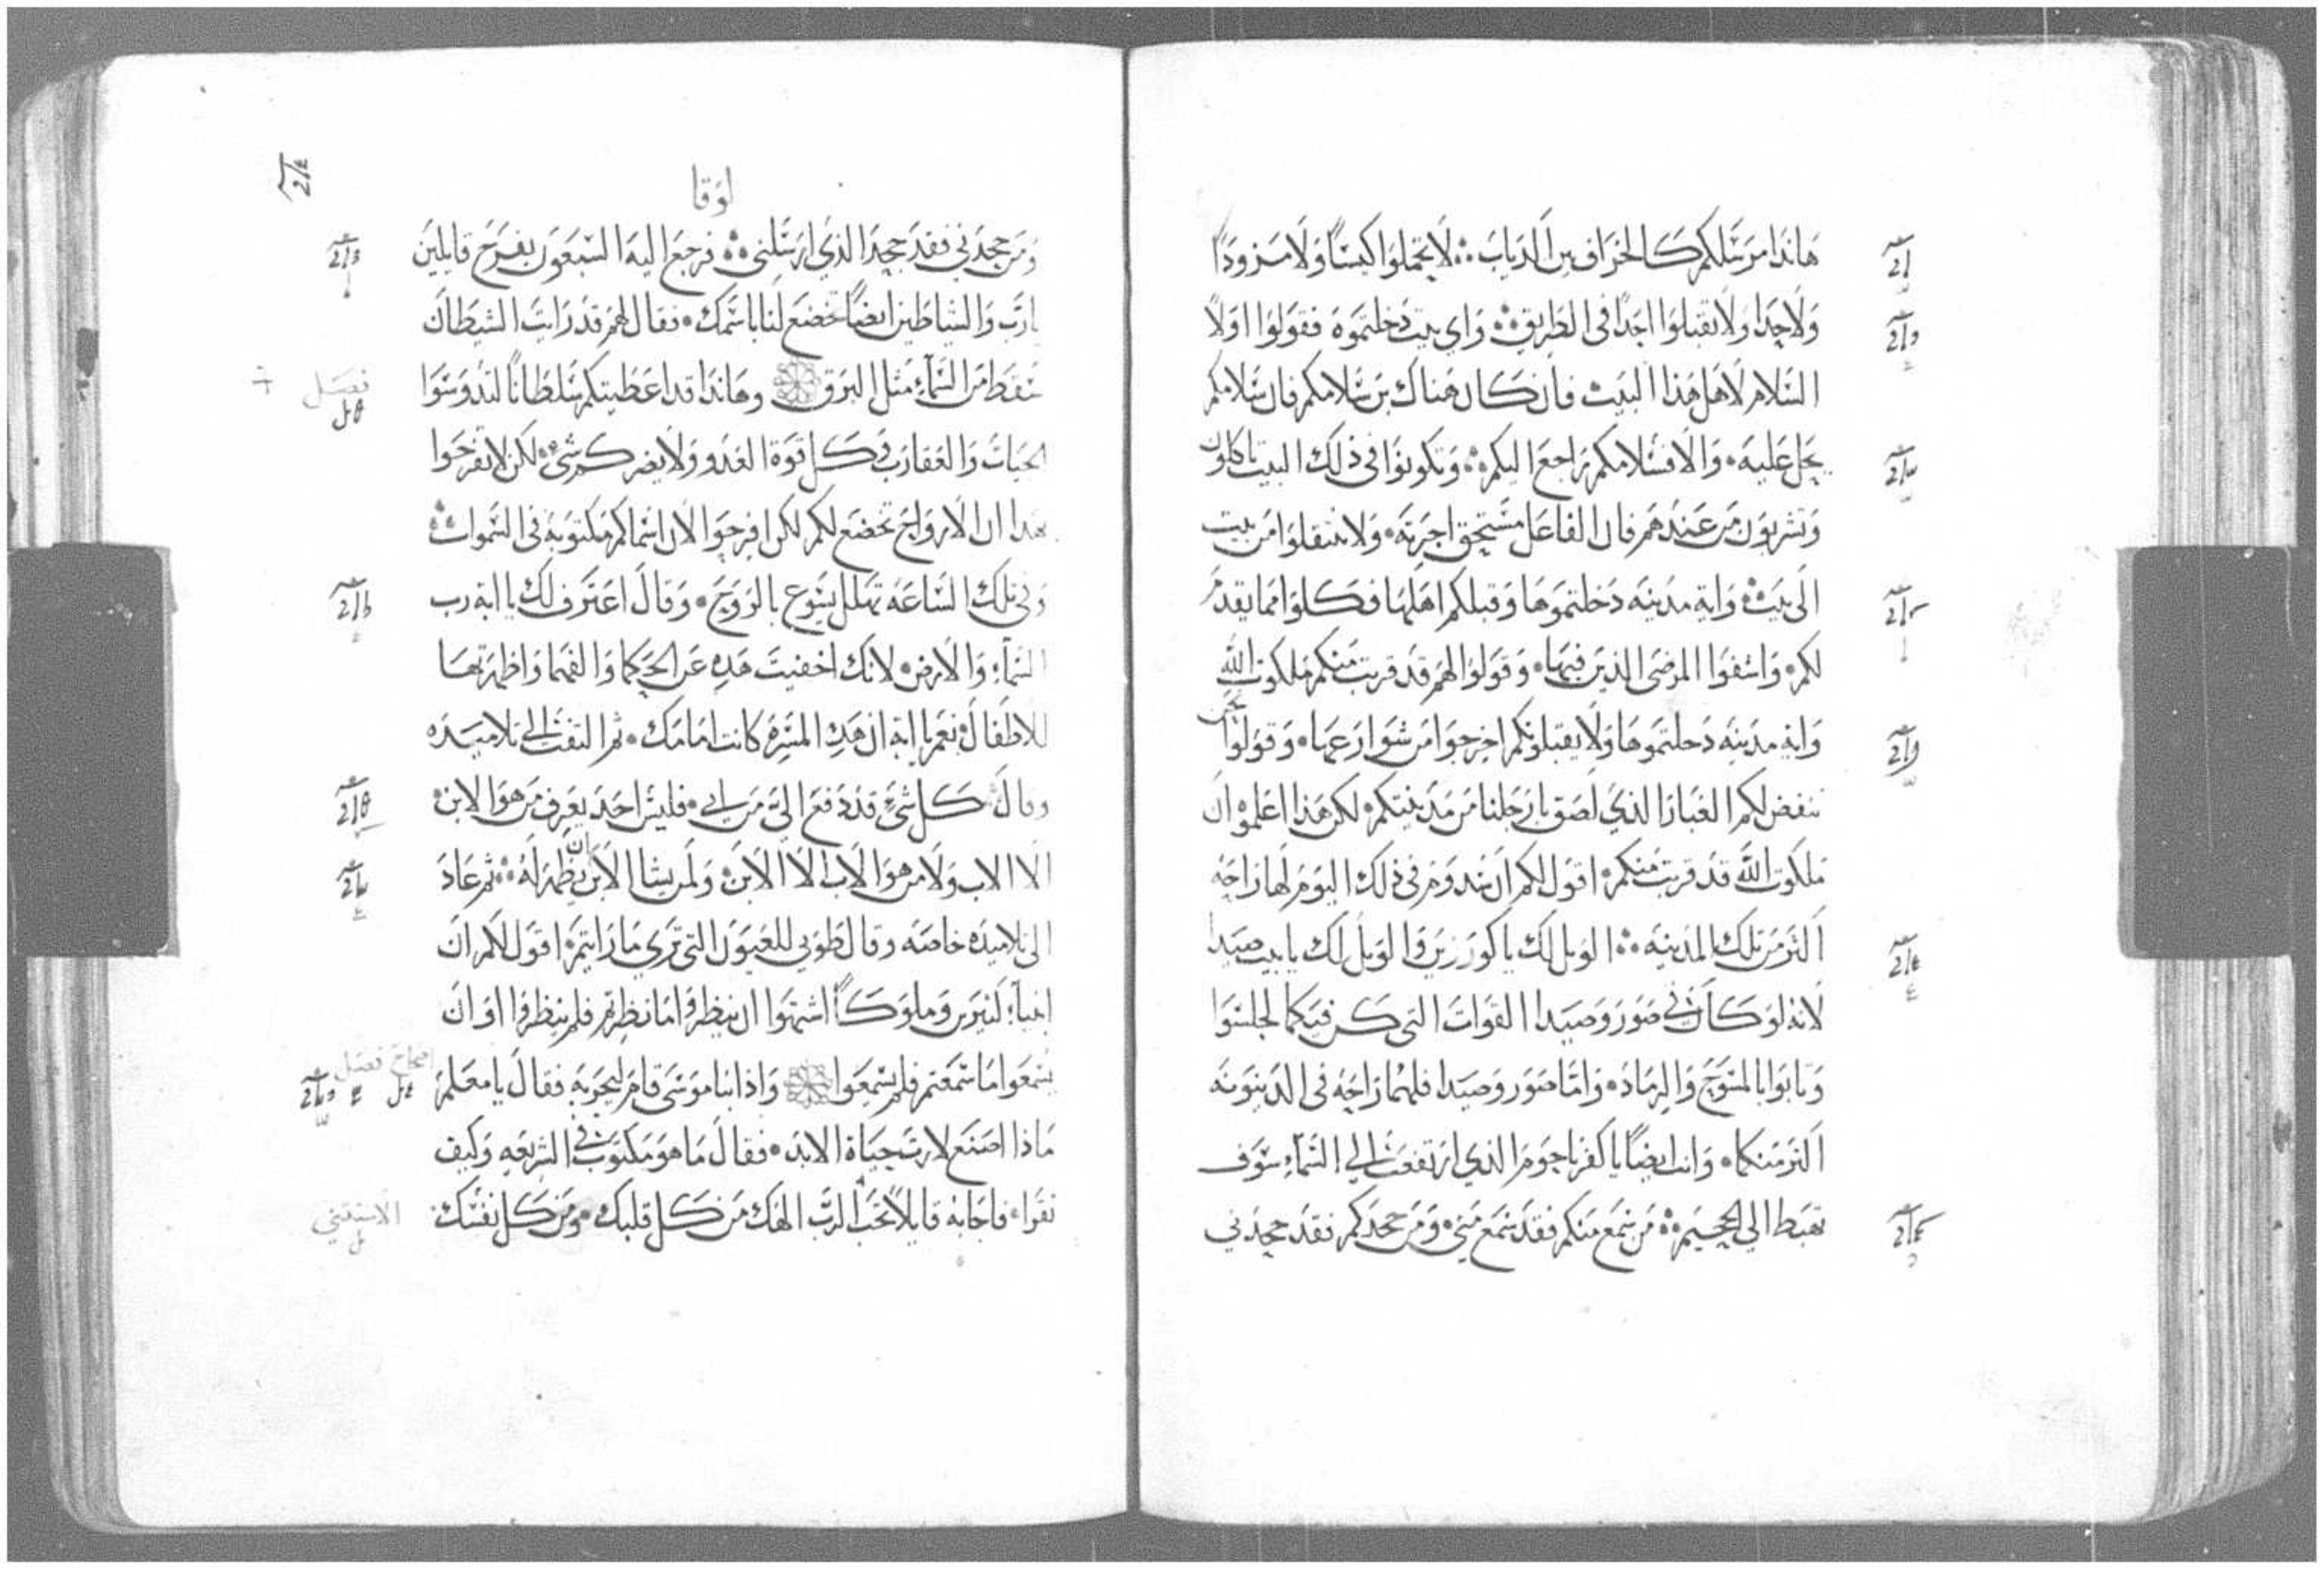 هاندا مرسلكم كالخراف بين الدياب لا تحملوا كيسًا ولا مزودًا
ولا حدا ولا تقبلوا احدًا فى الطريق واي بيت دخلتموه فقولوا اولًا
السلام لاهل هذا البيت فان كان هناك بن سلامكم فان سلامكم
يحل عليه والا فسلامكم راجع اليكم وتكونوا فى ذلك البيت تاكلون
وتشربون من عندهم فان الفاعل مستحق اجرته ولا تنتقلوا من بيت
الى بيت واية مدينه دخلتموها وقبلكم اهلها فكلوا مما يقدم
لكم واشفوا المرضى الذين فيها وقولوا لهم قد قربت منكم ملكوت الله
واية مدينه دخلتموها ولا يقبلونكم اخرجوا من شوارعها وقولوا نحن
ننفض لكم الغبار الذي لصق بارجلنا من مدينتكم لكن هذا اعلموه ان
ملكوت الله قد قربت منكم اقول لكم ان سدوم فى ذلك اليوم لها راحه
اكثر من تلك المدينه الويل لك يا كورزين والويل لك يا بيت صيدا
لانه لو كان فى صور وصيدا القوات التى كن فيكما لجلسوا
وتابوا بالمسوح والرماد واما صور وصيدا فلهما راحه فى الدينونه
اكثر منكما وانت ايضًا يا كفرناحوم الذي ارتفعت الي السماء سوف
تهبط الي الجحيم من سمع منكم فقد سمع مني ومن جحدكم فقد جحدني
لوقا
ومن جحدني فقد جحد الذي ارسلنى فرجع اليه السبعون بفرح قايلين
يارب والشياطين ايضًا تخضع لنا باسمك فقال لهم قد رايت الشيطان
سقط من السماء مثل البرق وهاندا قد اعطيتكم سلطانًا لتدوسوا
فصل
الحيات والعقارب وكل قوة العدو ولا يضركم شى لكن لا تفرحوا
بهدا ان الارواح تخضع لكم لكن افرحوا لان اسماكم مكتوبه فى السموات
وفى تلك الساعه تهلل يسوع بالروح وقال اعترف لك يا ابة رب
السماء والارض لانك اخفيت هده عن الحكما والفهما واظهرتها
للاطفال نعم يا ابة ان هده المسرة كانت امامك ثم التفت الي تلاميده
وقال كل شى قد دفع الي من ابي فليس احد يعرف من هو الابن
الا الاب ولا من هو الاب الا الابن ولمن يشا الابن ان يظهر له ثم عاد
الى تلاميده خاصه وقال طوبي للعيون التى تري ما رايتم اقول لكم ان
انبياء كثيرين وملوكًا اشتهوا ان ينظروا ما نظرتم فلم ينظروا اوان
يسمعوا ما سمعتم فلم يسمعوا واذا انسا موسى قام ليجربه فقال يا معلم
فصل
ماذا اصنع لارث حياة الابد فقال ما هو مكتوب فى الشريعه وكيف
تقرا فاجابه قايلًا تحب الرب الهك من كل قلبك ومن كل نفسك